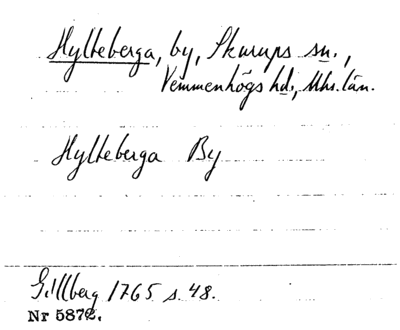 Hylteberga, by, Skurups sn.,
Vemmenhögs hd., Mhs. län.
Hylteberga By
Gillberg 1765 s. 48.
Nr 5872.